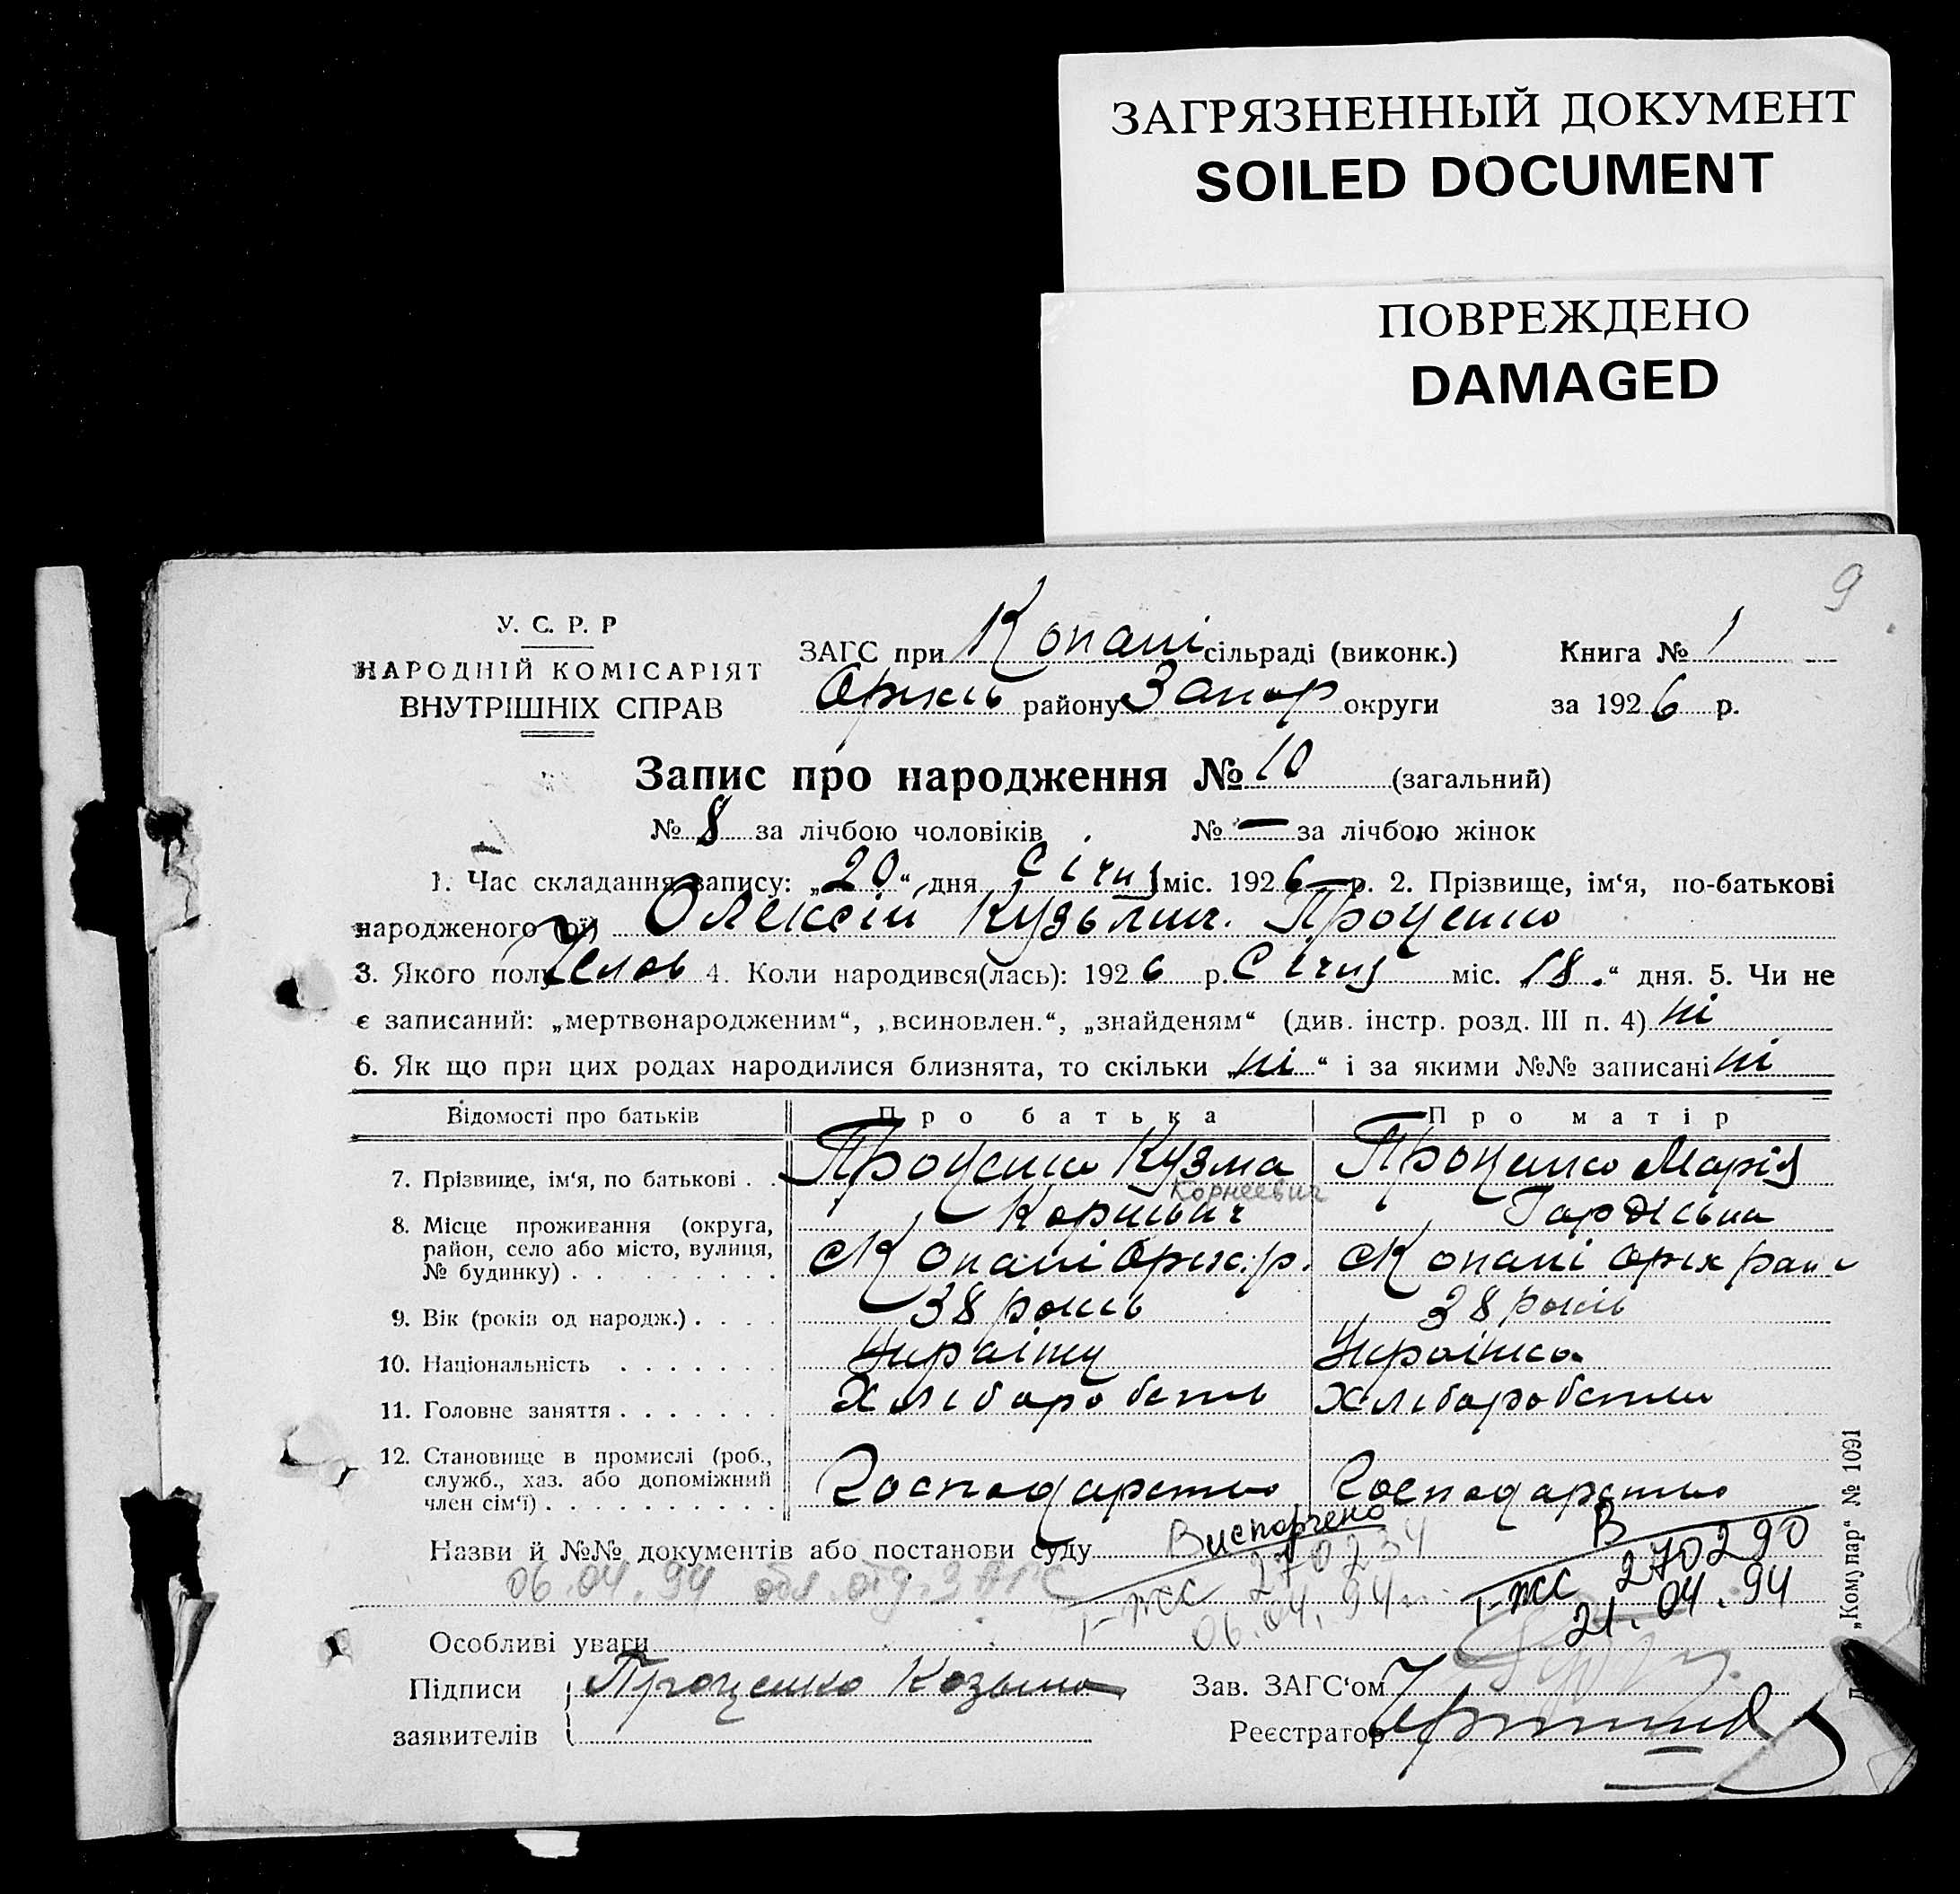 ЗАГРЯЗНЕННЫЙ ДОКУМЕНТ
SOILED DOCUMENT
ПОВРЕЖДЕНО
DAMAGED
9
У. С. Р. Р
НАРОДНІЙ КОМІСАРІЯТ
ВНУТРІШНІХ СПРАВ
ЗАГС при Копані сільраді (виконк.) Книга № 1
Оріхів району Запор округи за 1926 р.
Запис про народження № 10 (загальний)
№ 8 за лічбою чоловіків № — за лічбою жінок
1. Час складання запису: „20“ дня Січня міс. 1926 р. 2. Прізвище, ім‘я, по-батькові
народженого (ої) Олексій Кузьмич. Проценко
3. Якого полу Челов 4. Коли народився(лась): 1926 р. Січня міс. „18.“ дня. 5. Чи не
є записаний: „мертвонародженим“, „всиновлен.“, „знайденям“ (див. інстр. розд. III п. 4) ні
6. Як що при цих родах народилися близнята, то скільки „ні“ і за якими №№ записані ні
Відомості про батьків Про батька Про матір
7. Прізвище, ім‘я, по батькові . . Проценко Кузма Проценко Марія
Корнеевич
Корнієвич Гордієвна
8. Місце проживання (округа,
район, село або місто, вулиця,
№ будинку) . . . . . . . . . с Копані Оріх. р. с Копані Оріх район
9. Вік (років од народж.) . . . . 38 років 38 років
10. Національність . . . . . . . Українц Українка
11. Головне заняття . . . . . . . Хліборобств Хліборобство
12. Становище в промислі (роб.,
служб., хаз. або допоміжний
член сім‘ї) . . . . . . . . . . Господарство Господарство
Назви й №№ документів або постанови суду Виспорчено В
270234 270290
06.04.94 обл.отд.ЗАГС I-ЖС I-ЖС
06.04.94 21.04.94
Особливі уваги
Підписи Проценко Козьма Зав. ЗАГС‘ом
заявителів Реєстратор
„Комунар“ № 1091